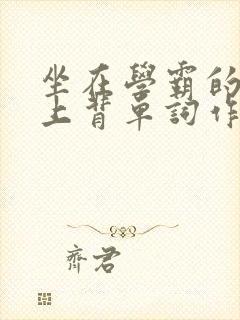 坐在學霸的
上背單詞作
齊君